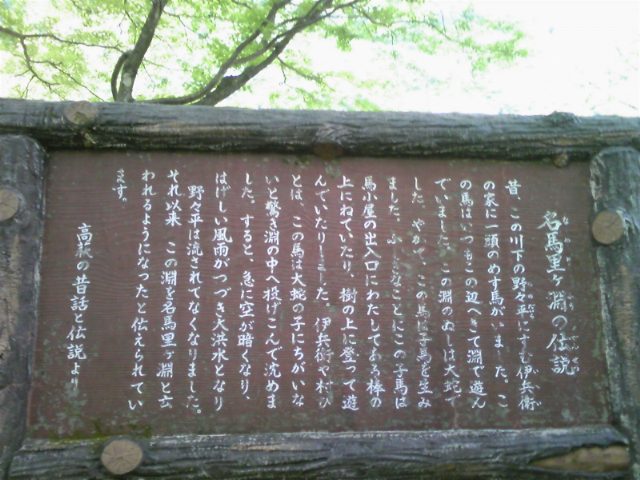 名馬里ヶ淵の伝説
昔、この川下の野々平にすむ伊兵衛
の家に一頭のめす馬がいました。こ
の馬はいつもこの辺へきて淵で遊ん
でいました。この淵のぬしは大蛇で
した。やがて、この馬は子馬を生み
ました。ふしぎなことにこの子馬は
馬小屋の出入口にわたしてある棒の
上にねていたり、樹の上に登って遊
んでいたりしました。伊兵衛や村び
とは、この馬は大蛇の子にちがいな
いと驚き淵の中へ投げこんで沈めま
した。すると、急に空が暗くなり、
はげしい風雨がつづき大洪水となり
野々平は流されてなくなりました。
それ以来 この淵を名馬里ヶ淵と云
われるようになったと伝えられてい
ます。
高萩の昔話と伝説より